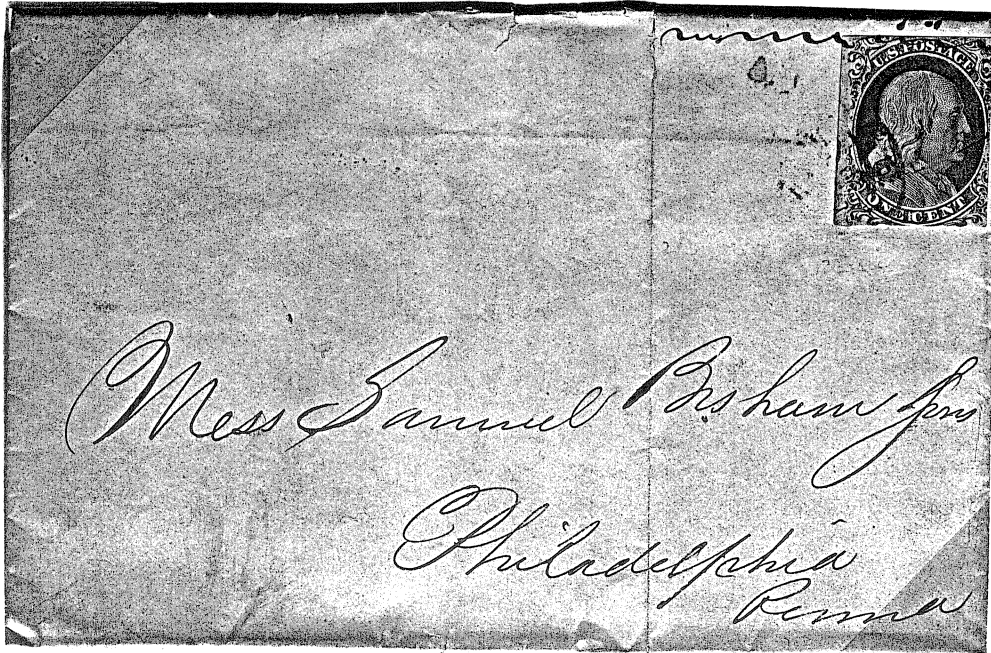 U.S. POSTAGE
ONE CENT
Mess Samuel Bisham Sons
Philadelphia
Penna